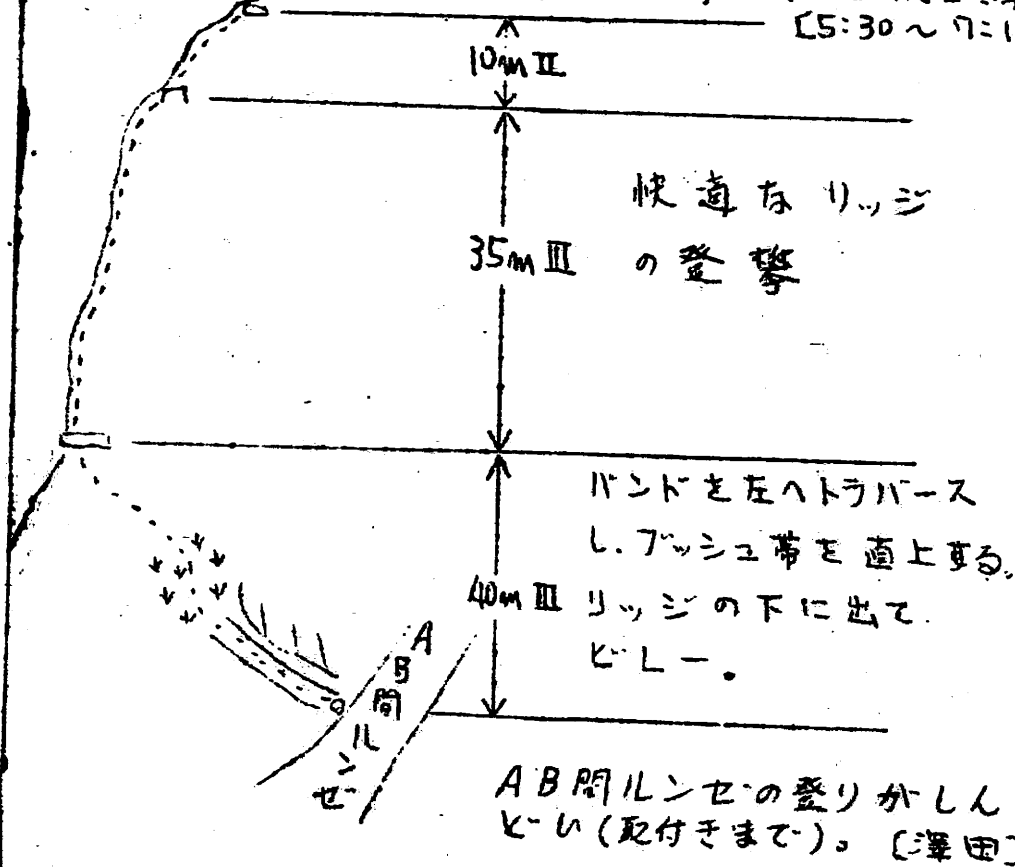 [5:30 ~ 7:1
10m II
快適なリッジ
の登攀
35m III
バンドを左へトラバース
し、ブッシュ帯を直上する。
40m III
リッジの下に出て
ビレー。
AB間ルンゼ
AB間ルンゼの登りがしん
どい(取付きまで)。[澤田